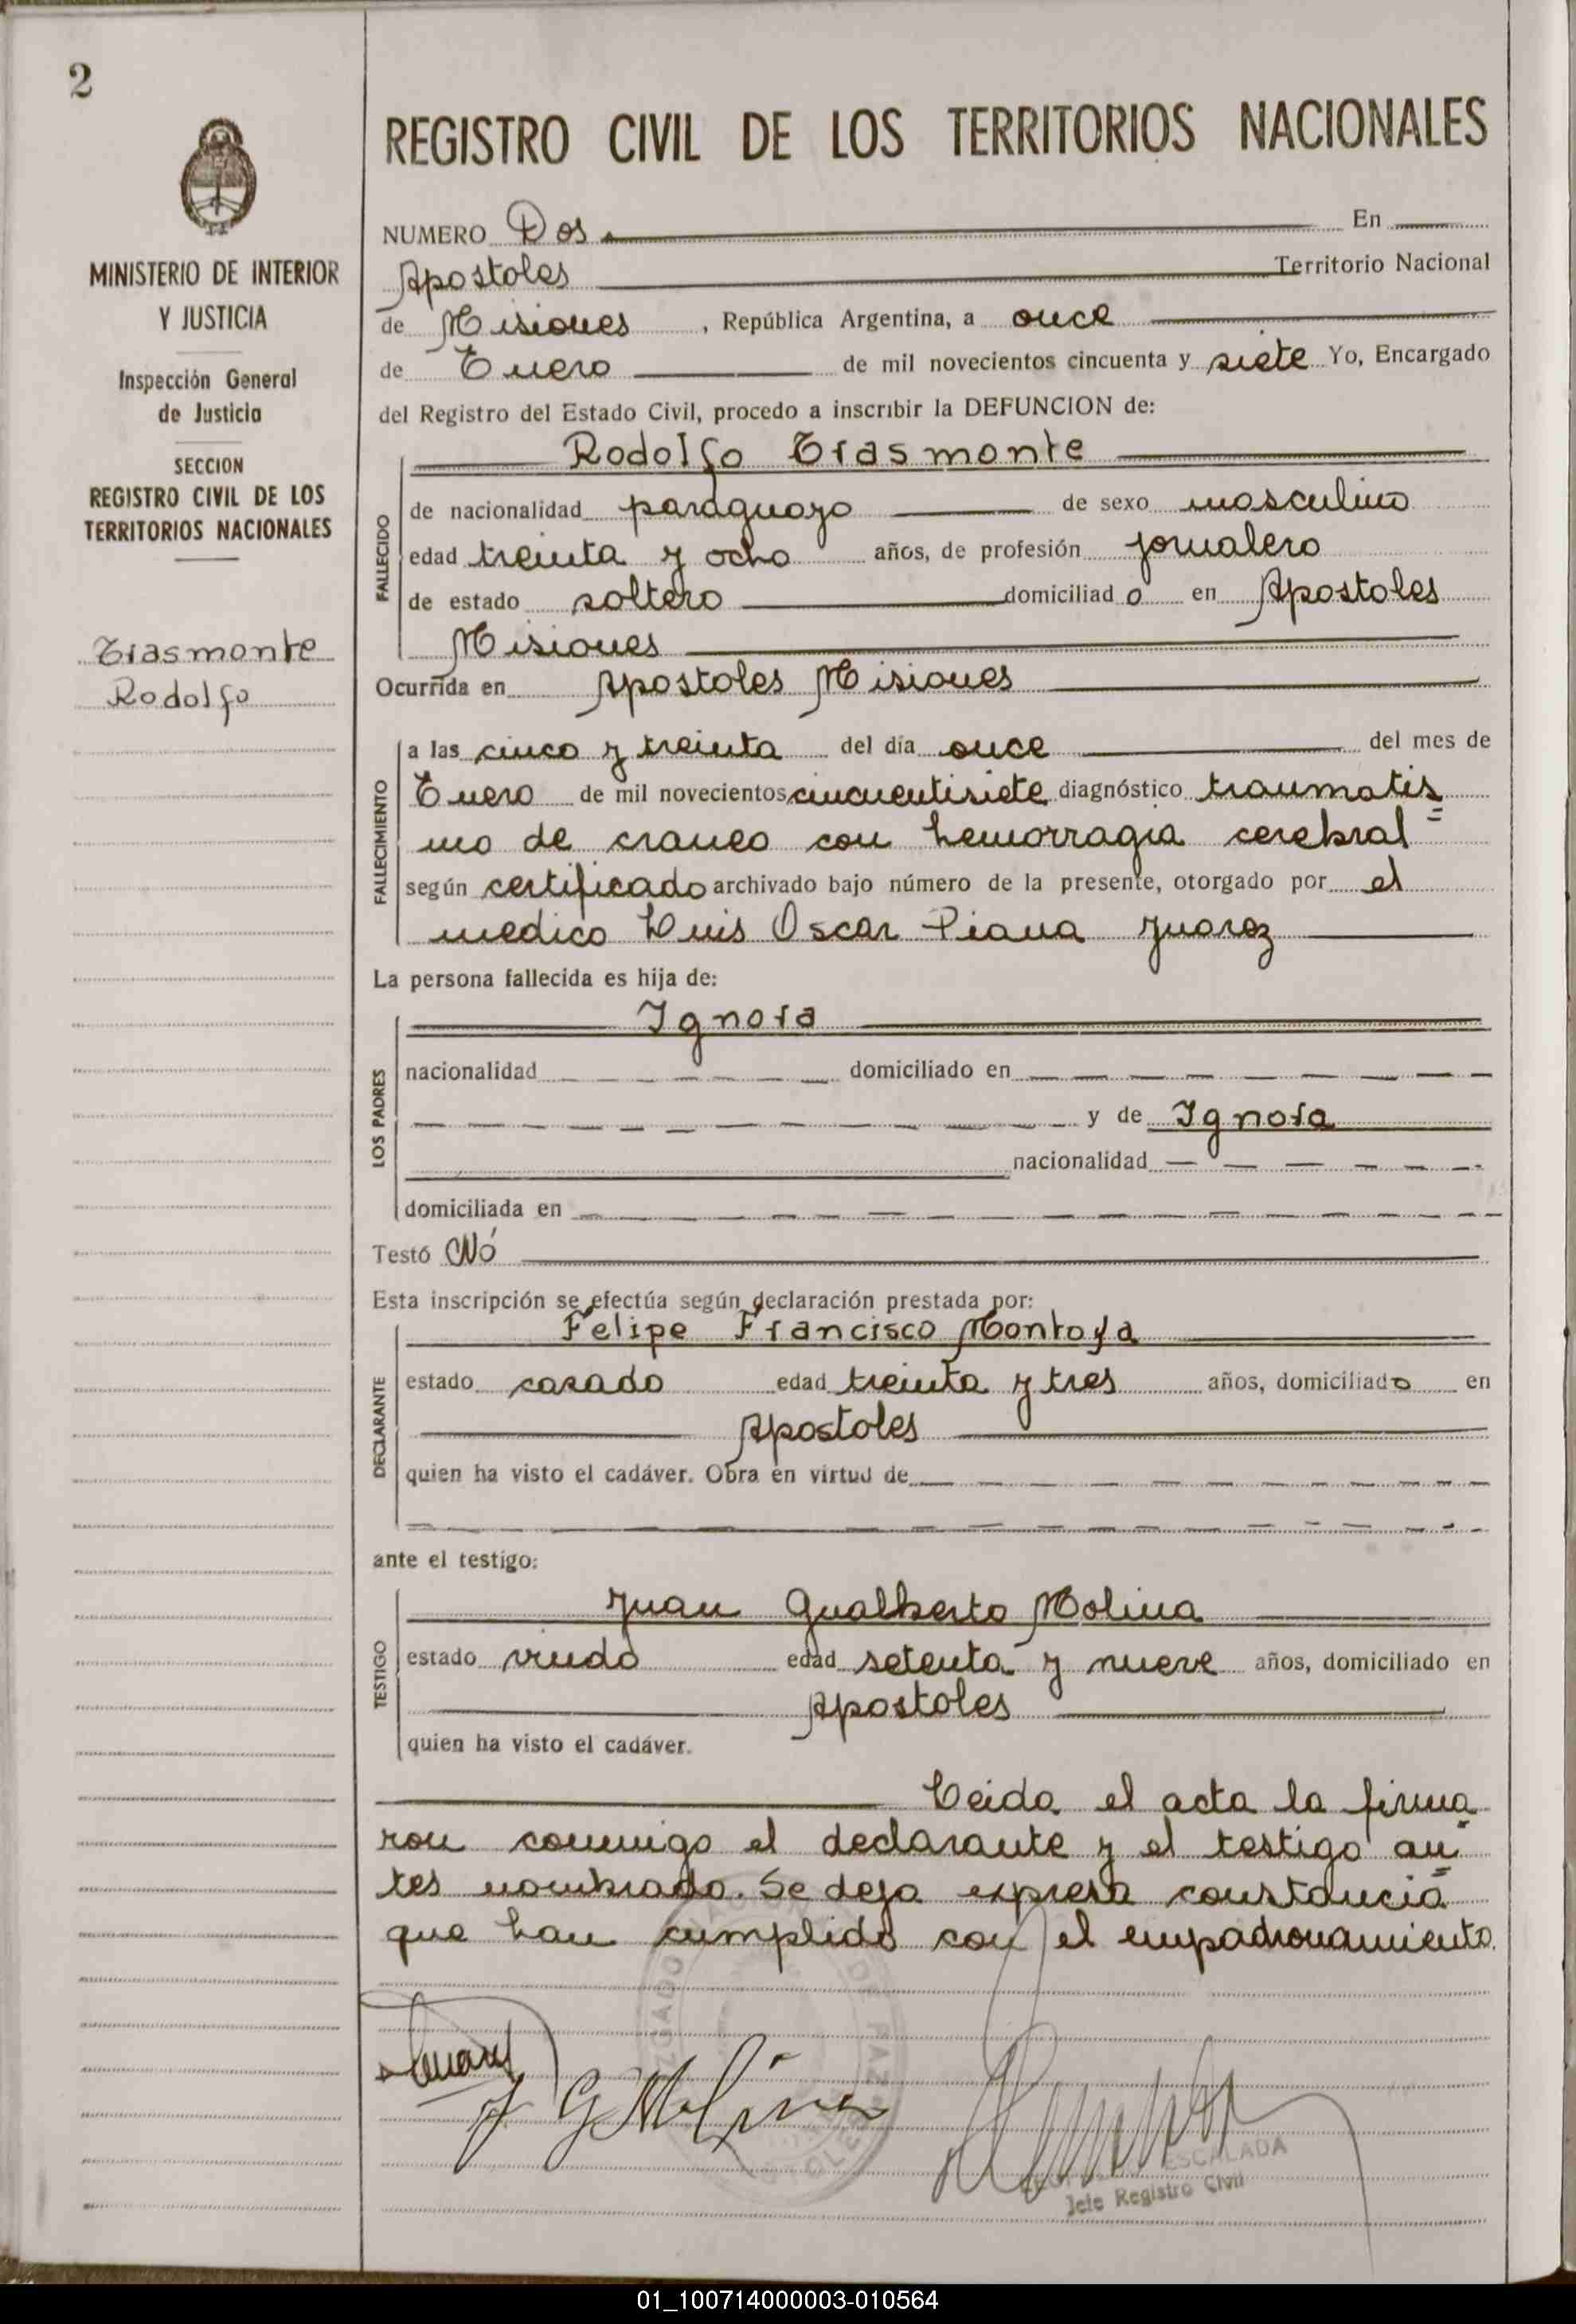 2
MINISTERIO DE INTERIOR
Y JUSTICIA
Inspección General
de Justicia
SECCION
REGISTRO CIVIL DE LOS
TERRITORIOS NACIONALES
Erasmonte
Rodolfo
REGISTRO CIVIL DE LOS TERRITORIOS NACIONALES
NUMERO Dos En
Apostoles Territorio Nacional
de Misiones, República Argentina, a once
de Enero de mil novecientos cincuenta y siete Yo, Encargado
del Registro del Estado Civil, procedo a inscribir la DEFUNCION de:
FALLECIDO
Rodolfo Erasmonte
de nacionalidad paraguayo de sexo masculino
edad treinta y ocho años, de profesión jornalero
de estado soltero domiciliado en Apostoles
Misiones
Ocurrida en Apostoles Misiones
FALLECIMIENTO
a las cinco y treinta del día once del mes de
Enero de mil novecientos cincuentisiete diagnóstico traumatis=
mo de craneo con hemorragia cerebral
según certificado archivado bajo número de la presente, otorgado por el
medico Luis Oscar Piana Juarez
La persona fallecida es hija de:
LOS PADRES
Ignora
nacionalidad domiciliado en
y de Ignora
nacionalidad
domiciliada en
Testó Nó
Esta inscripción se efectúa según declaración prestada por:
DECLARANTE
Felipe Francisco Montoya
estado casado edad treinta y tres años, domiciliado en
Apostoles
quien ha visto el cadáver. Obra en virtud de
ante el testigo:
TESTIGO
Juan Gualberto Molina
estado viudo edad setenta y nueve años, domiciliado en
Apostoles
quien ha visto el cadáver.
Leida el acta la firma
ron conmigo el declarante y el testigo an=
tes nombrado. Se deja expresa constancia
que han cumplido con el empadronamiento.
J G Molina
ESCALADA
Jefe Registro Civil
01_100714000003-010564